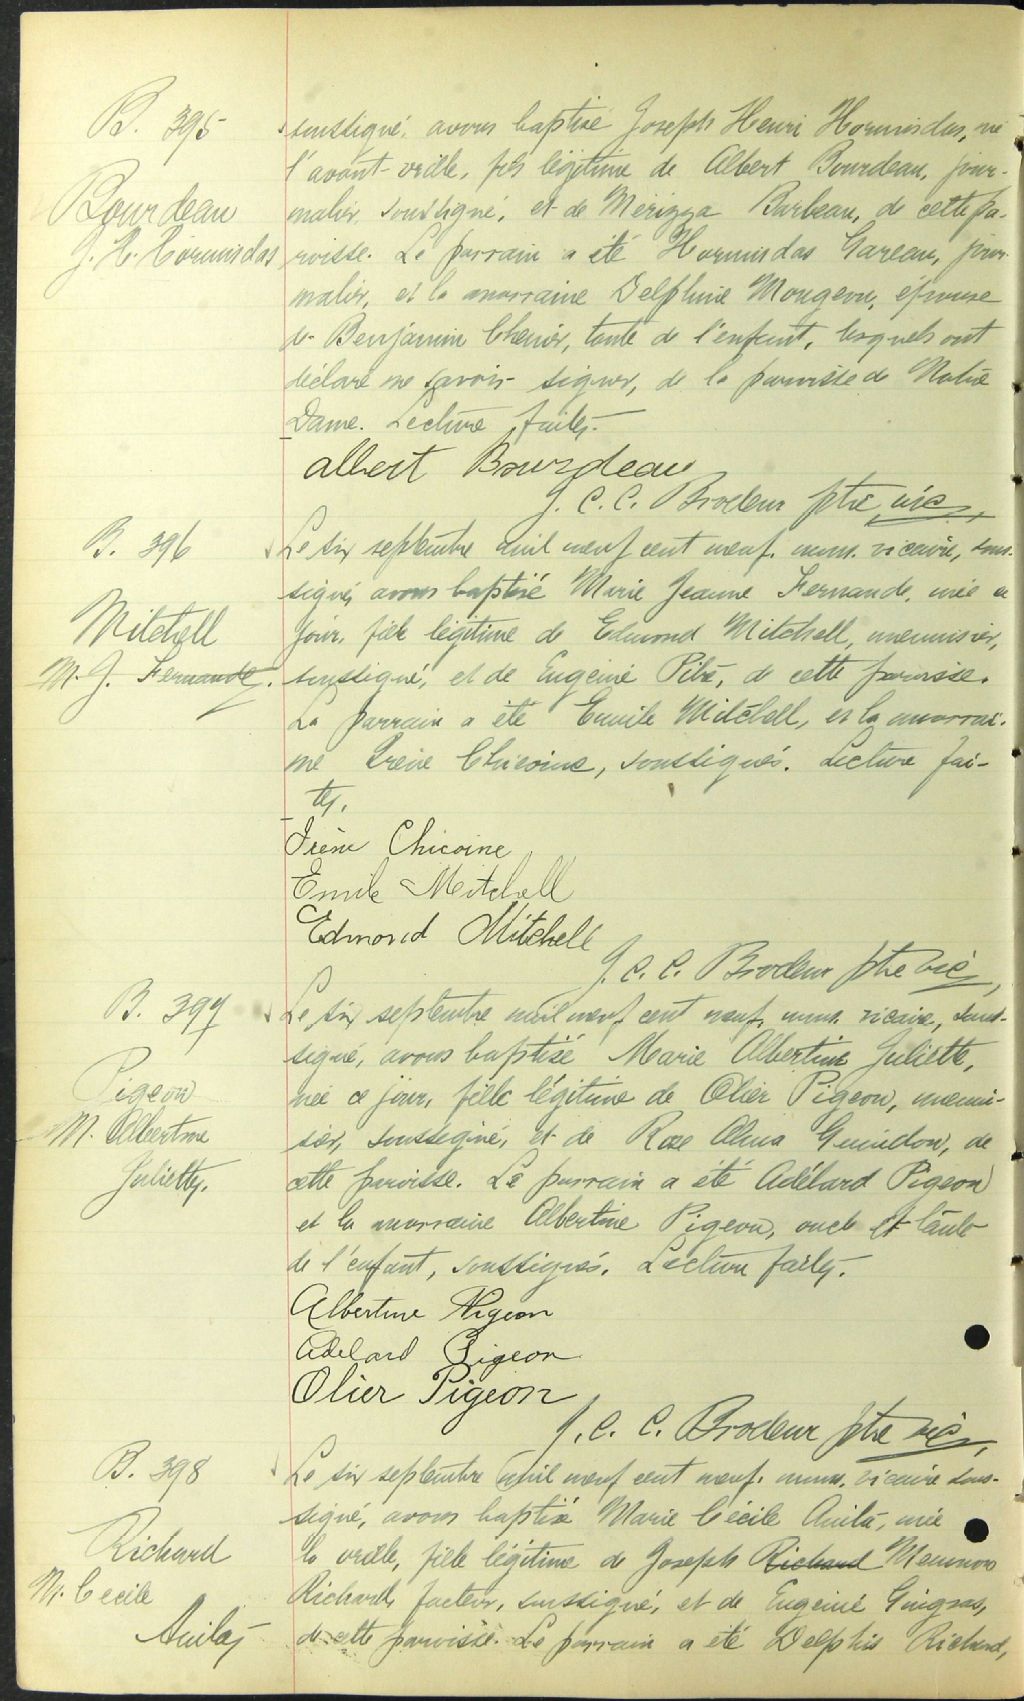 B. 395
Bourdeau
J. H. Hormisdas
soussigné, avons baptisé Joseph Henri Hormisdas, né
l'avant-veille, fils légitime de Albert Bourdeau, jour-
nalier, soussigné, et de Mérizza Barbeau, de cette pa-
roisse. Le parrain a été Hormisdas Gareau, jour-
nalier, et la marraine Delphine Mongeon, épouse
de Benjamin Chenier, tante de l'enfant, lesquels ont
déclaré ne savoir signer, de la paroisse de Notre
Dame. Lecture faite.
Albert Bourdeau
J. C. C. Brodeur ptre vic.
B. 396
Mitchell
M. J. Fernande.
Le six septembre mil neuf cent neuf, nous, vicaire, sous-
signé, avons baptisé Marie Jeanne Fernande, née ce
jour, fille légitime de Edmond Mitchell, menuisier,
soussigné, et de Eugénie Pibé, de cette paroisse.
Le parrain a été Emile Mitchell, et la marrai-
ne Irène Chicoine, soussignés. Lecture fai-
te.
Irène Chicoine
Emile Mitchell
Edmond Mitchell
J. C. C. Brodeur ptre vic.
B. 397
Pigeon
M. Albertine
Juliette.
Le six septembre mil neuf cent neuf, nous, vicaire, sous-
signé, avons baptisé Marie Albertine Juliette,
née ce jour, fille légitime de Olier Pigeon, menui-
sier, soussigné, et de Rose Alma Guindon, de
cette paroisse. Le parrain a été Adélard Pigeon
et la marraine Albertine Pigeon, oncle et tante
de l'enfant, soussignés. Lecture faite.
Albertine Pigeon
Adelard Pigeon
Olier Pigeon
J. C. C. Brodeur ptre vic.
B. 398
Richard
M. Cecile
Anita
Le six septembre mil neuf cent neuf, nous, vicaire sous-
signé, avons baptisé Marie Cécile Anita, née
la veille, fille légitime de Joseph Richard
Richard, facteur, soussigné, et de Eugénie Gingras,
de cette paroisse. Le parrain a été Delphis Richard,